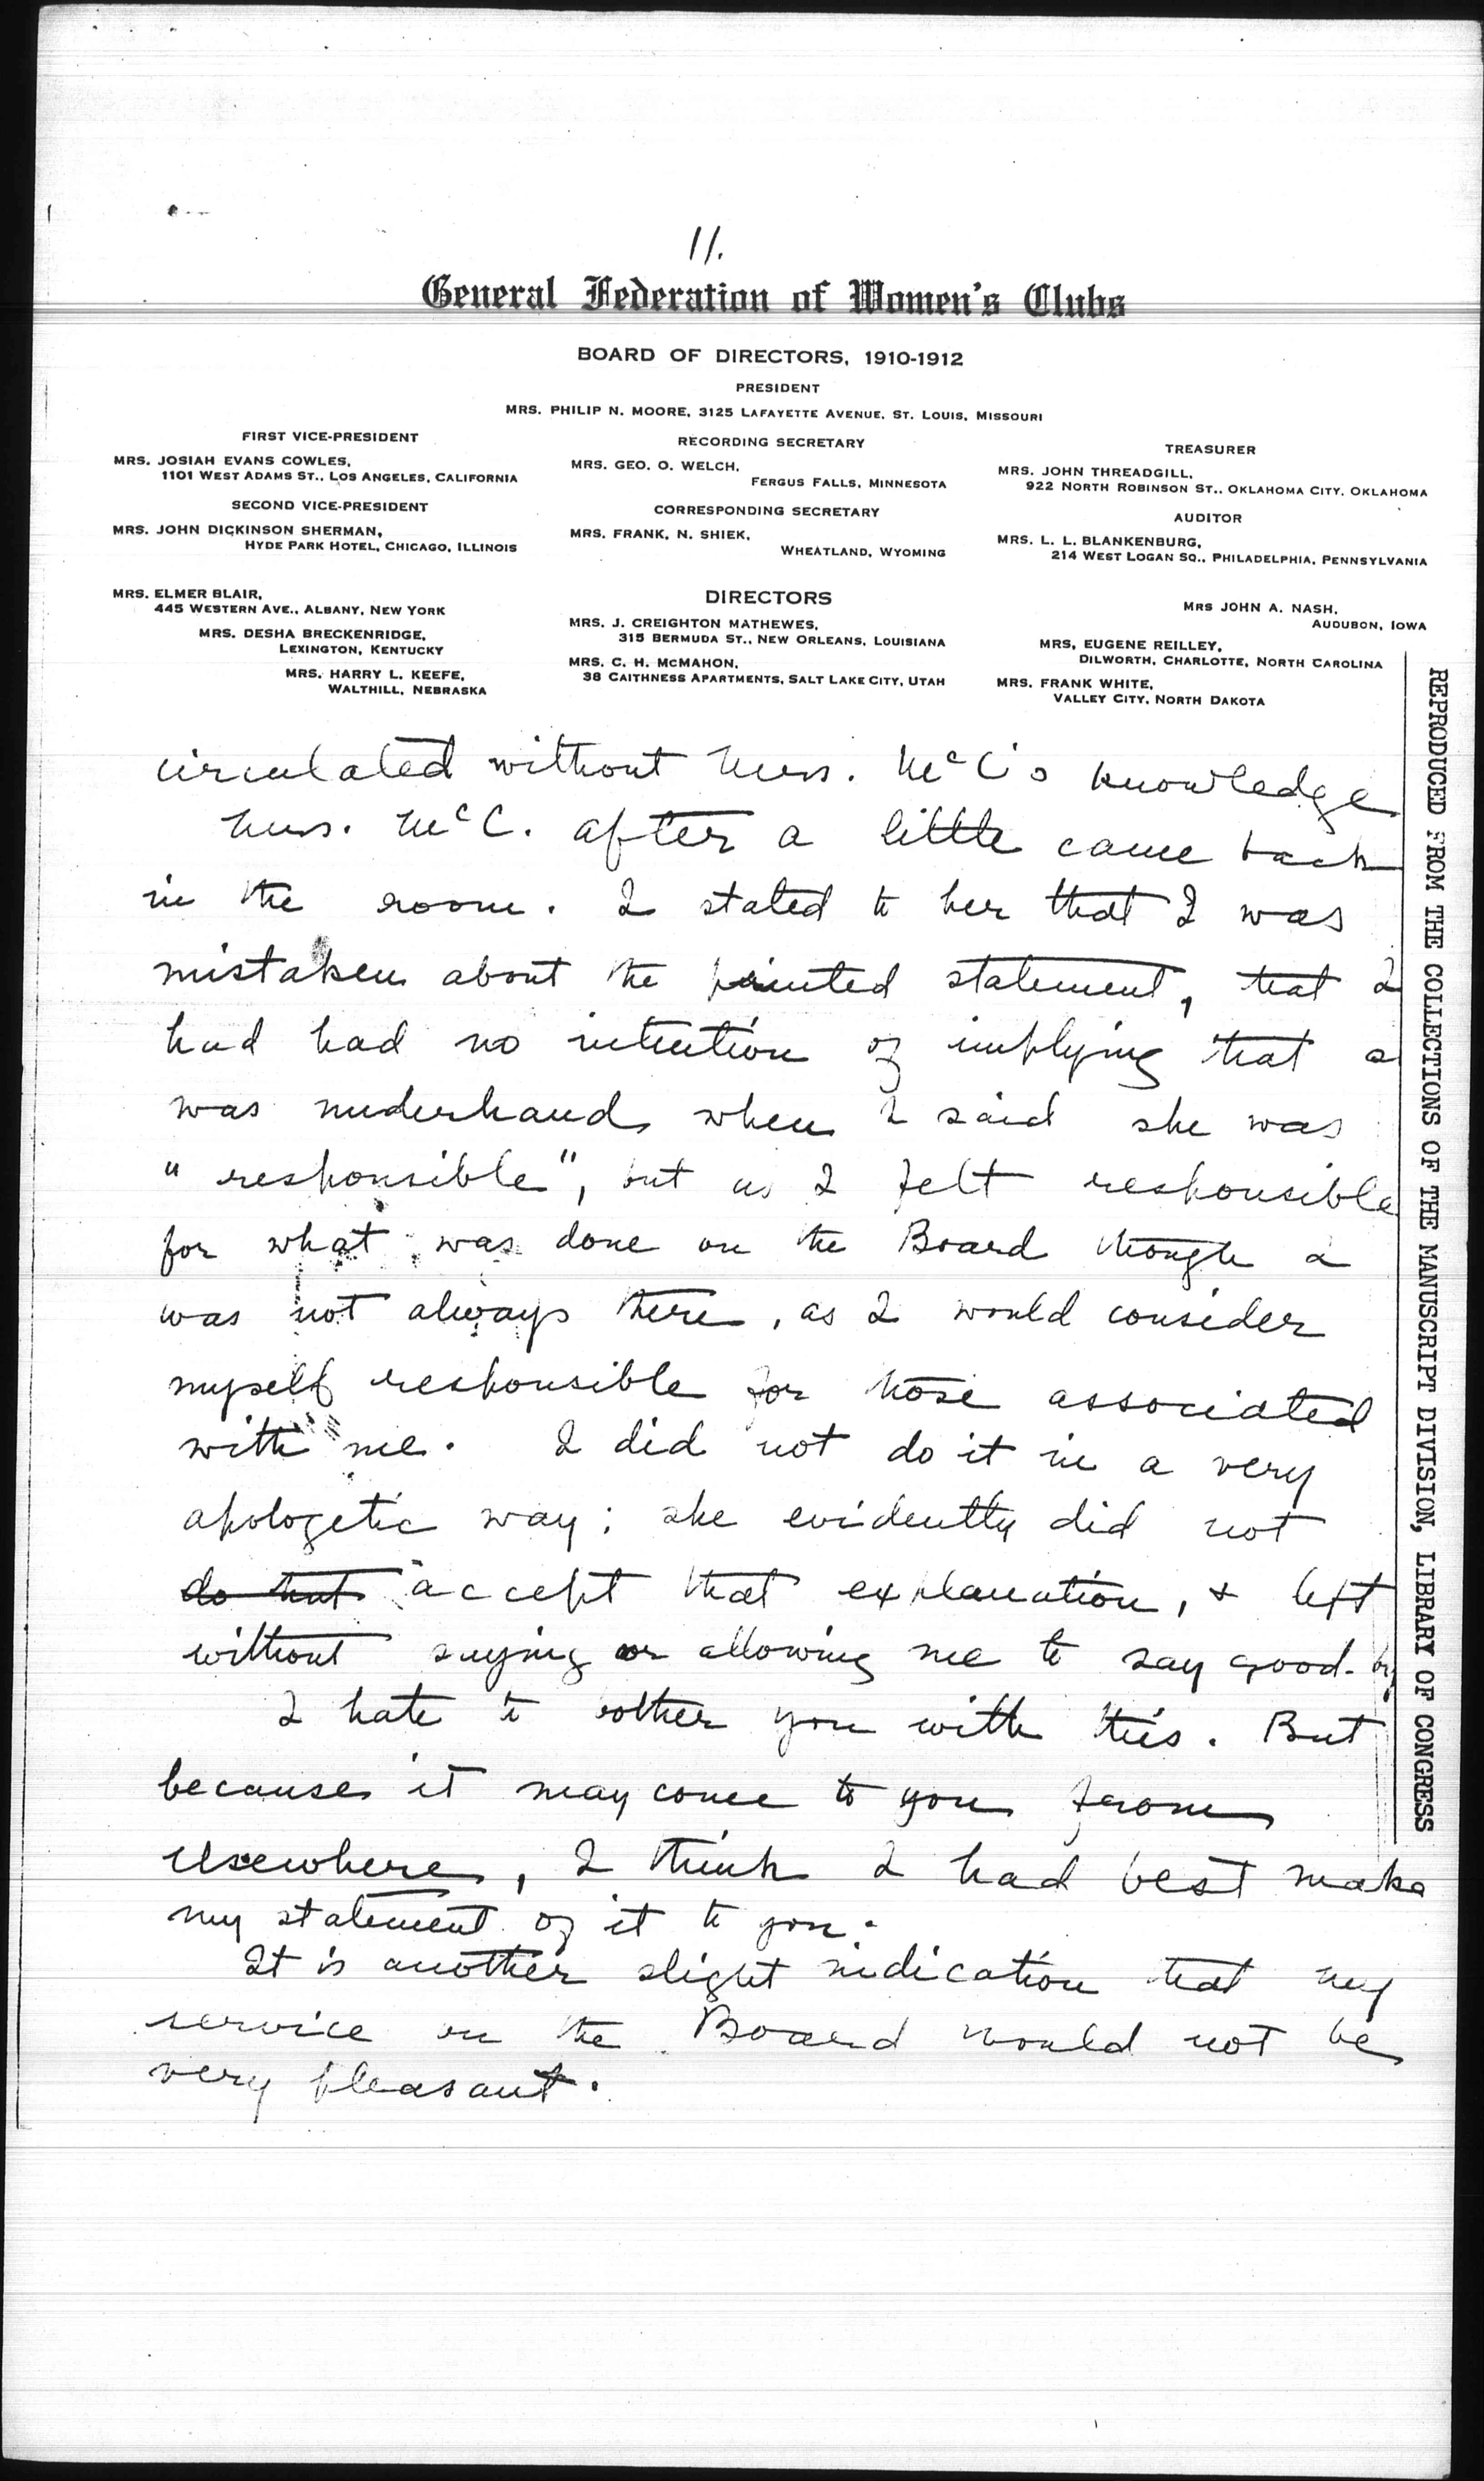 11.
General Federation of Women's Clubs
BOARD OF DIRECTORS, 1910-1912
PRESIDENT
MRS. PHILIP N. MOORE, 3125 LAFAYETTE AVENUE, ST. LOUIS, MISSOURI
FIRST VICE-PRESIDENT
MRS. JOSIAH EVANS COWLES,
1101 WEST ADAMS ST., LOS ANGELES, CALIFORNIA
SECOND VICE-PRESIDENT
MRS. JOHN DICKINSON SHERMAN,
HYDE PARK HOTEL, CHICAGO, ILLINOIS
RECORDING SECRETARY
MRS. GEO. O. WELCH,
FERGUS FALLS, MINNESOTA
CORRESPONDING SECRETARY
MRS. FRANK. N. SHIEK,
WHEATLAND, WYOMING
TREASURER
MRS. JOHN THREADGILL,
922 NORTH ROBINSON ST., OKLAHOMA CITY, OKLAHOMA
AUDITOR
MRS. L. L. BLANKENBURG,
214 WEST LOGAN SQ., PHILADELPHIA, PENNSYLVANIA
DIRECTORS
MRS. ELMER BLAIR,
445 WESTERN AVE., ALBANY, NEW YORK
MRS. DESHA BRECKENRIDGE,
LEXINGTON, KENTUCKY
MRS. HARRY L. KEEFE,
WALTHILL, NEBRASKA
MRS. J. CREIGHTON MATHEWES,
315 BERMUDA ST., NEW ORLEANS, LOUISIANA
MRS. C. H. MCMAHON,
38 CAITHNESS APARTMENTS, SALT LAKE CITY, UTAH
MRS JOHN A. NASH,
AUDUBON, IOWA
MRS, EUGENE REILLEY,
DILWORTH, CHARLOTTE, NORTH CAROLINA
MRS. FRANK WHITE,
VALLEY CITY, NORTH DAKOTA
circulated without Mrs. McC's knowledge
Mrs. McC. after a little came back
in the room. I stated to her that I was
mistaken about the printed statement, that I
had had no intention of implying that
was underhand when I said she was
"responsible", but as I felt responsible
for what was done on the Board though I
was not always there, as I would consider
myself responsible for those associated
with me. I did not do it in a very
apologetic way; she evidently did not
do that accept that explanation, & left
without saying or allowing me to say good-by
I hate to bother you with this. But
because it may come to you from
elsewhere, I think I had best make
my statement of it to you.
It is another slight indication that my
service on the Board would not be
very pleasant.
REPRODUCED FROM THE COLLECTIONS OF THE MANUSCRIPT DIVISION, LIBRARY OF CONGRESS